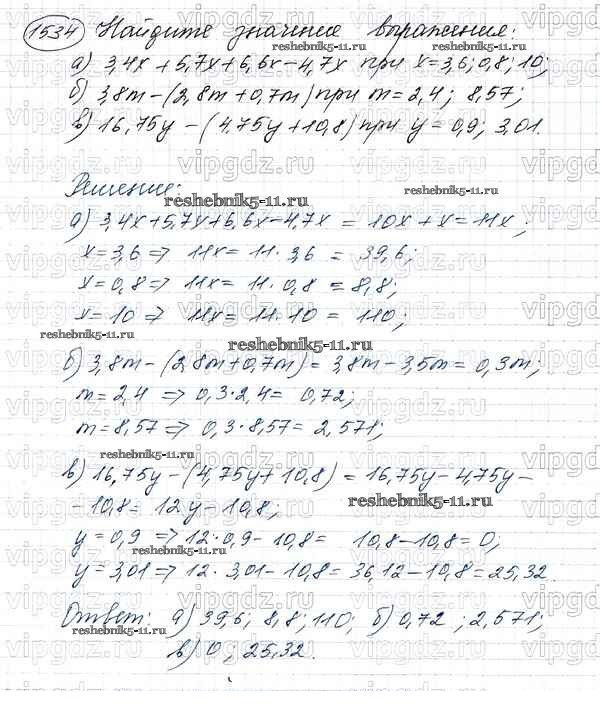 1534 Найдите значение выражения:
а) 3,4x + 5,7x + 6,6x - 4,7x при x = 3,6; 0,8; 10;
б) 3,8m - (2,8m + 0,7m) при m = 2,4; 8,57;
в) 16,75y - (4,75y + 10,8) при y = 0,9; 3,01.
Решение:
а) 3,4x + 5,7x + 6,6x - 4,7x = 10x + x = 11x;
x = 3,6 => 11x = 11 · 3,6 = 39,6;
x = 0,8 => 11x = 11 · 0,8 = 8,8;
x = 10 => 11x = 11 · 10 = 110;
б) 3,8m - (2,8m + 0,7m) = 3,8m - 3,5m = 0,3m;
m = 2,4 => 0,3 · 2,4 = 0,72;
m = 8,57 => 0,3 · 8,57 = 2,571;
в) 16,75y - (4,75y + 10,8) = 16,75y - 4,75y -
- 10,8 = 12y - 10,8;
y = 0,9 => 12 · 0,9 - 10,8 = 10,8 - 10,8 = 0;
y = 3,01 => 12 · 3,01 - 10,8 = 36,12 - 10,8 = 25,32.
Ответ: а) 39,6; 8,8; 110; б) 0,72; 2,571;
в) 0; 25,32.
reshebnik5-11.ru
vipgdz.ru